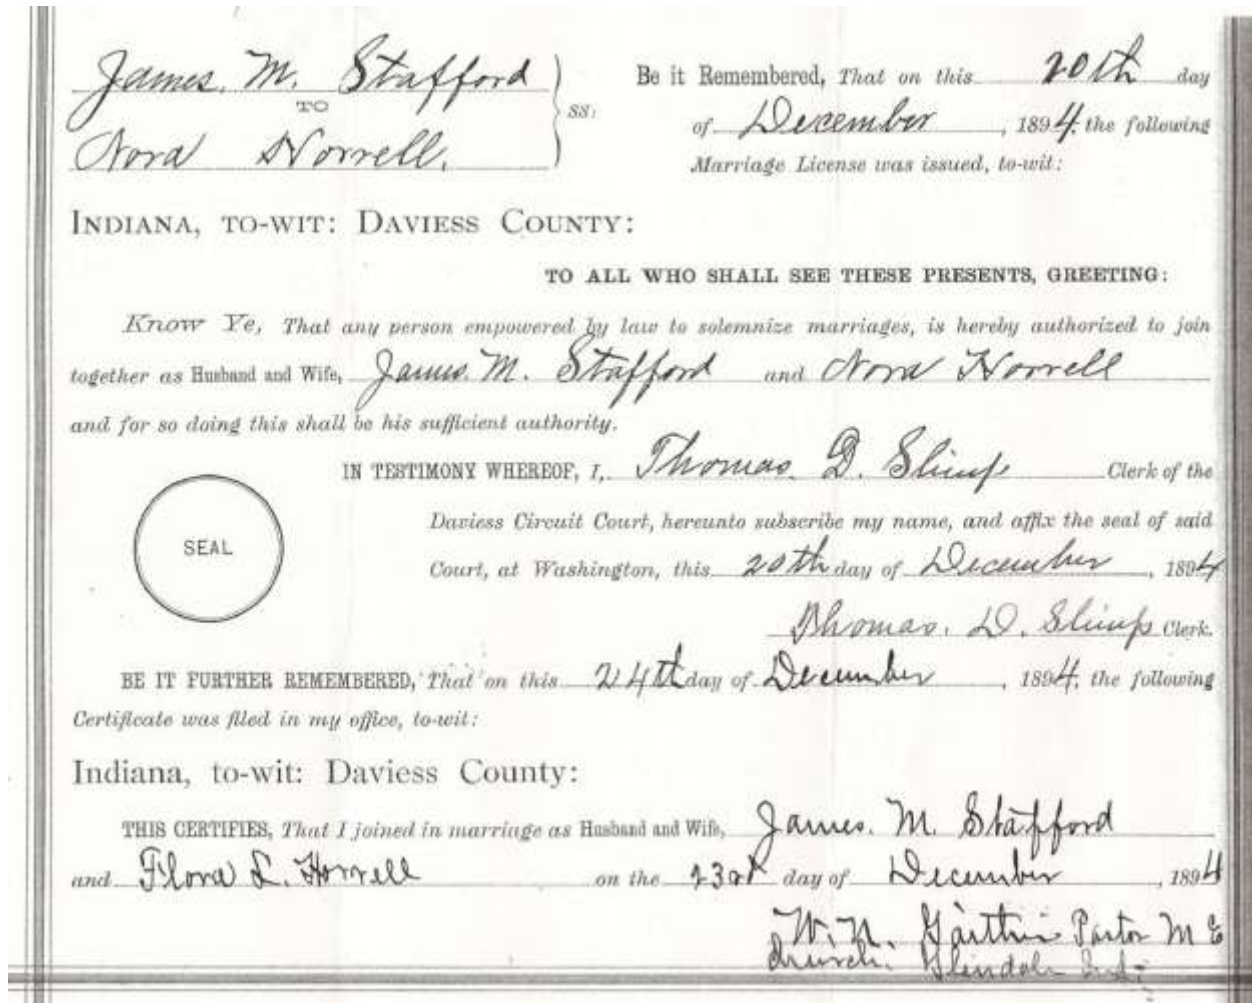 James. M. Stafford
TO
Nora Horrell.
SS:
Be it Remembered, That on this 20th day
of December, 1894. the following
Marriage License was issued, to-wit:
INDIANA, TO-WIT: DAVIESS COUNTY:
TO ALL WHO SHALL SEE THESE PRESENTS, GREETING:
Know Ye, That any person empowered by law to solemnize marriages, is hereby authorized to join
together as Husband and Wife, James. M. Stafford and Nora Horrell
and for so doing this shall be his sufficient authority.
IN TESTIMONY WHEREOF, I, Thomas. D. Slimp Clerk of the
SEAL
Daviess Circuit Court, hereunto subscribe my name, and affix the seal of said
Court, at Washington, this 20th day of December, 1894
Thomas. D. Slimp Clerk.
BE IT FURTHER REMEMBERED, That on this 24th day of December, 1894. the following
Certificate was filed in my office, to-wit:
Indiana, to-wit: Daviess County:
THIS CERTIFIES, That I joined in marriage as Husband and Wife, James. M. Stafford
and Flora L. Horrell on the 23rd day of December, 1894
W. N. Pastor M E
Church. Glendale Ind.